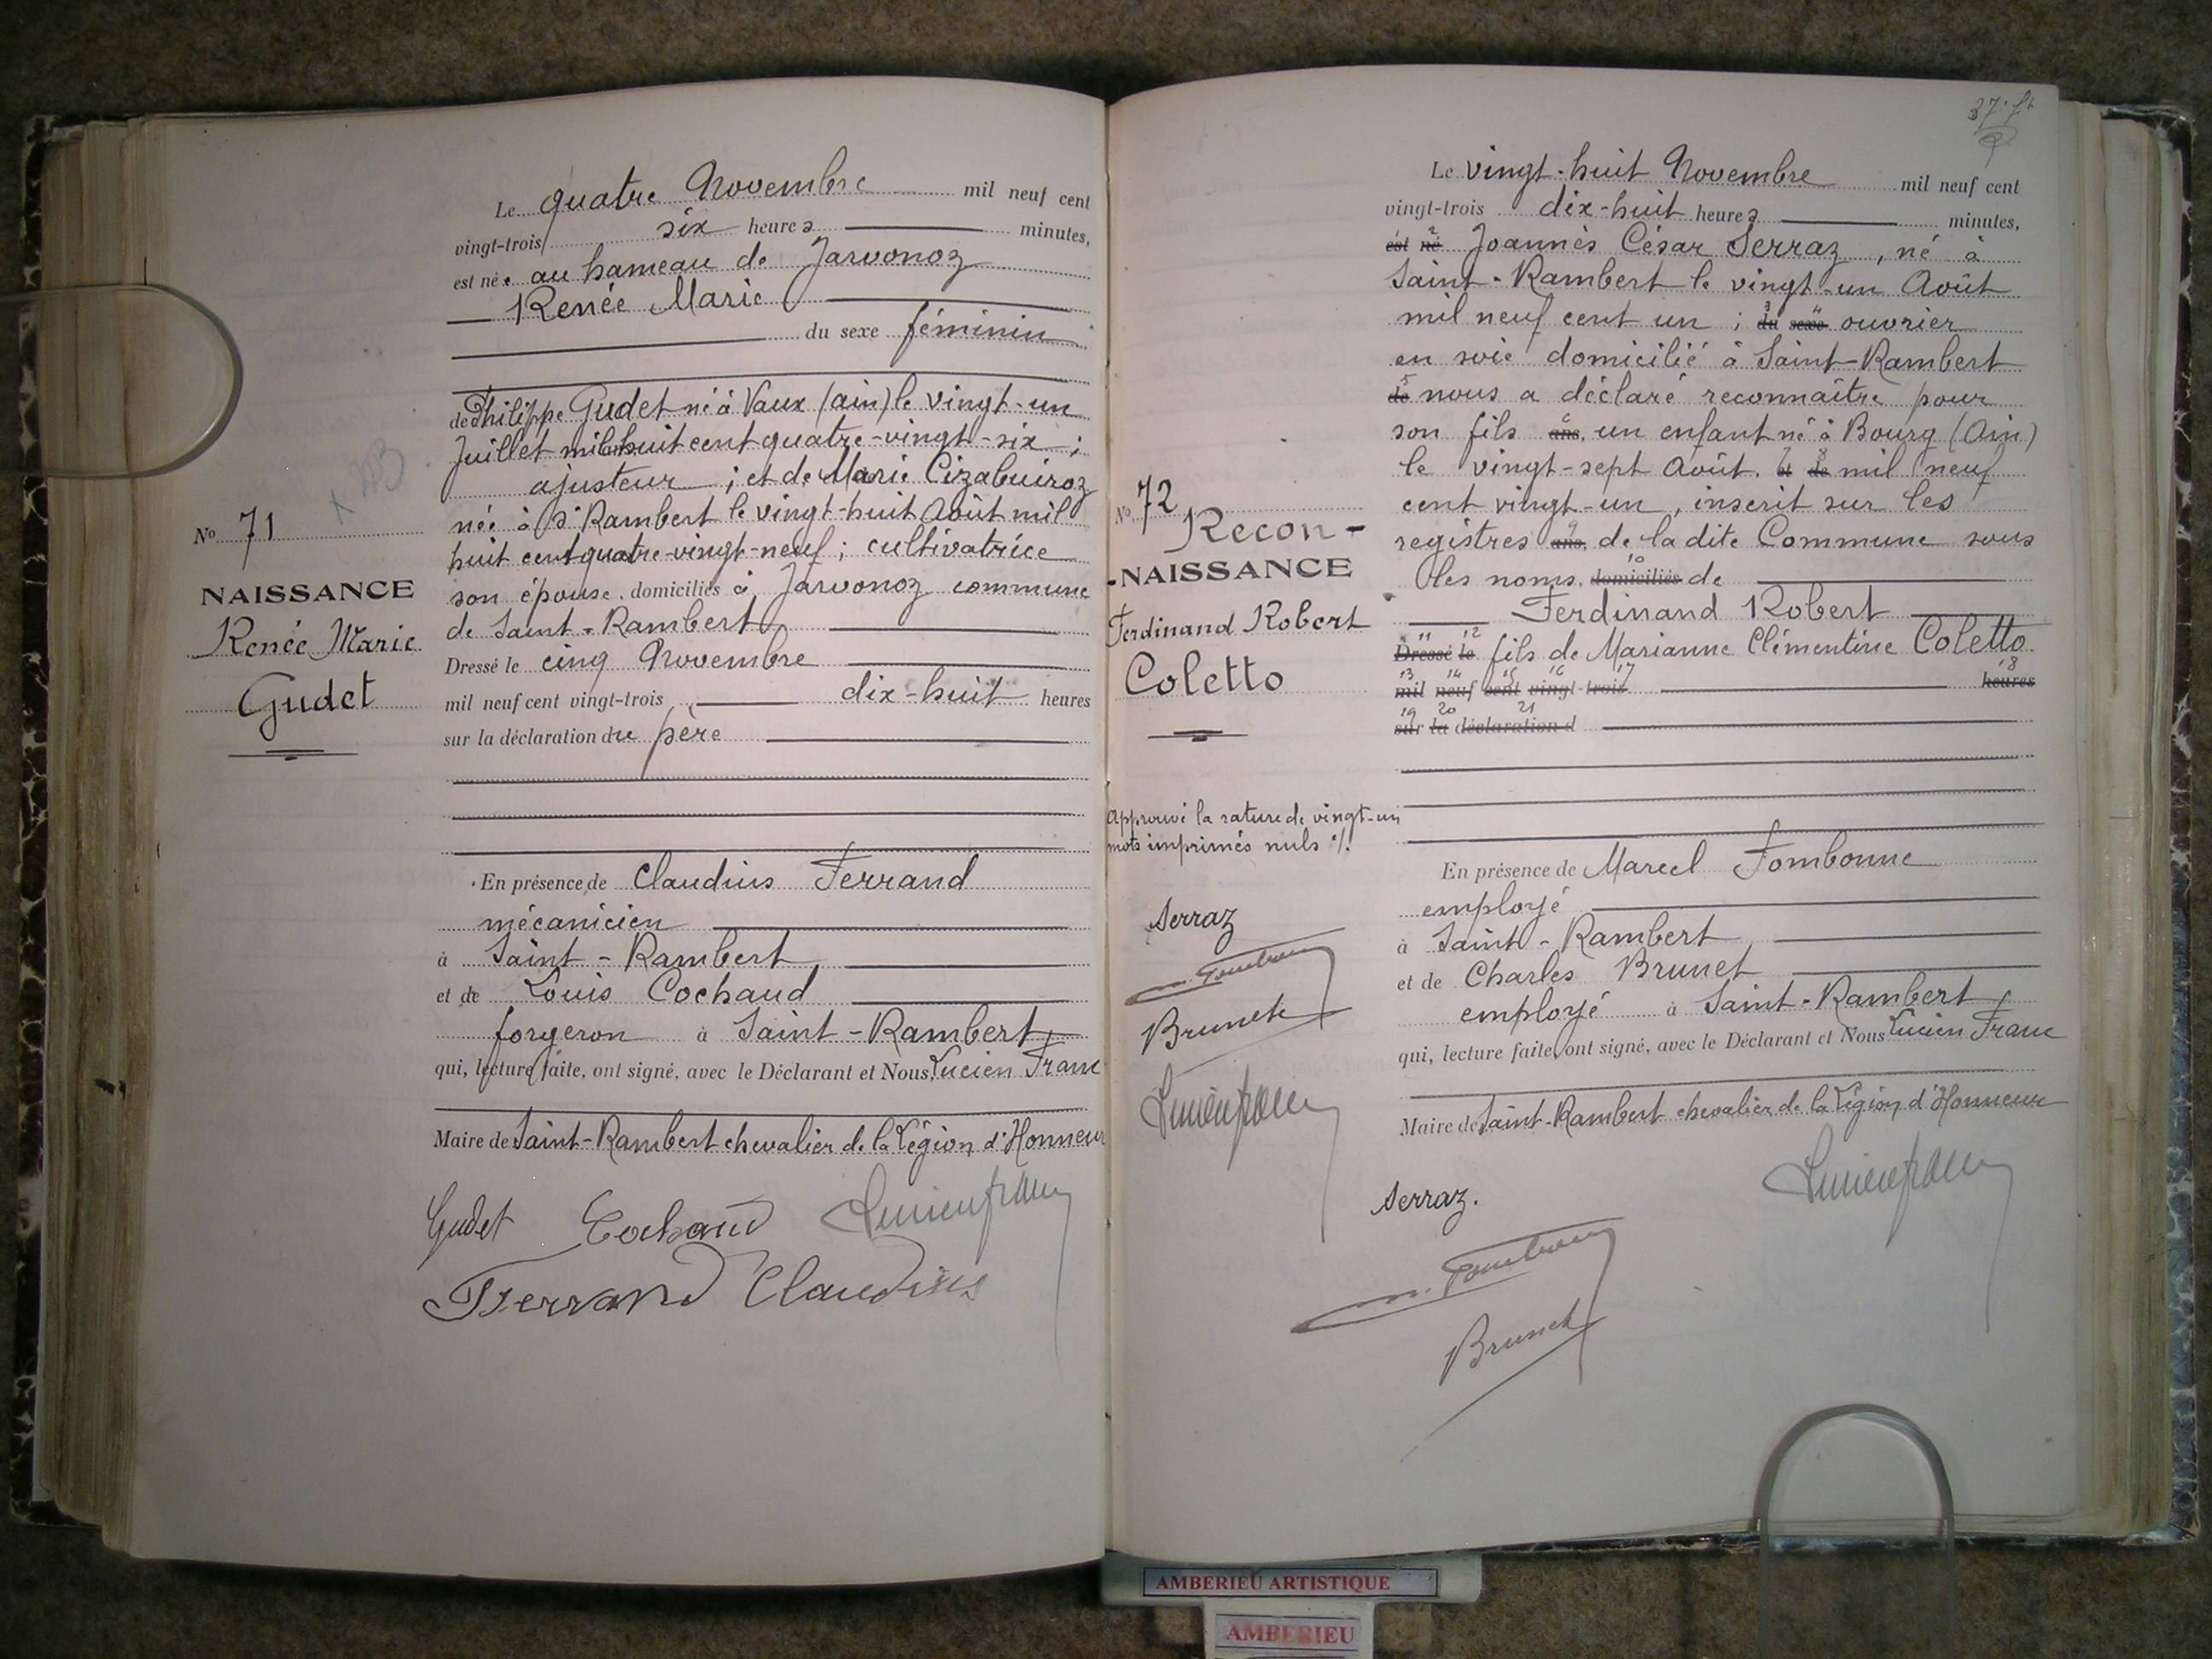 Le quatre Novembre mil neuf cent
vingt-trois six heures minutes,
est née au hameau de Jarvonoz
Renée Marie
du sexe féminin
de Philippe Gudet né à Vaux (ain) le vingt-un
Juillet mil huit cent quatre-vingt-six ;
ajusteur ; et de Marie Cizabuiroz
née à St Rambert le vingt-huit Août mil
huit cent quatre-vingt-neuf ; cultivatrice
son épouse, domiciliés à Jarvonoz commune
de Saint-Rambert
Dressé le cinq Novembre
mil neuf cent vingt-trois dix-huit heures
sur la déclaration du père
En présence de Claudius Ferrand
mécanicien
à Saint-Rambert
et de Louis Cochaud
forgeron à Saint-Rambert
qui, lecture faite, ont signé, avec le Déclarant et Nous, Lucien Franc
Maire de Saint-Rambert chevalier de la Légion d'Honneur
Gudet Cochaud Lucien Franc
Ferrand Claudius
No 71
NAISSANCE
Renée Marie
Gudet
Le vingt-huit Novembre mil neuf cent
vingt-trois dix-huit heures minutes,
est né 2 Joannès César Serraz, né à
Saint-Rambert le vingt-un Août
mil neuf cent un ; du 3 sexe 4 ouvrier
en soie domicilié à Saint-Rambert
de 5 nous a déclaré reconnaître pour
son fils ans, 6 un enfant né à Bourg (Ain)
le vingt-sept Août. et 7 de 8 mil neuf
cent vingt-un, inscrit sur les
registres ans, 9 de la dite Commune sous
les noms, domiciliés 10 de
Ferdinand Robert
Dressé 11 le 12 fils de Marianne Clémentine Coletto
13 14 15 16 17 18
mil neuf cent vingt-trois heures
19 20 21
sur la déclaration d
En présence de Marcel Fombonne
employé
à Saint-Rambert
et de Charles Brunet
employé à Saint-Rambert
qui, lecture faite, ont signé, avec le Déclarant et Nous Lucien Franc
Maire de Saint-Rambert chevalier de la Légion d'Honneur
Serraz. Lucien Franc
m. Fombonne
Brunet
No. 72
Recon-
-NAISSANCE
Ferdinand Robert
Coletto
Approuvé la rature de vingt-un
mots imprimés nuls ./.
Serraz
m. Fombonne
Brunet
Lucien Franc
AMBERIEU ARTISTIQUE
AMBERIEU